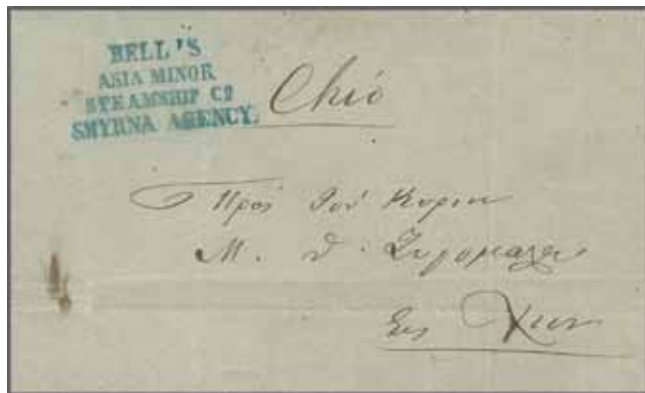 BELL'S
ASIA MINOR
STEAMSHIP Cọ
SMYRNA AGENCY.
Chió
Πρὸς τὸν Κύριον
Μ. Θ.
Εἰς Χίον